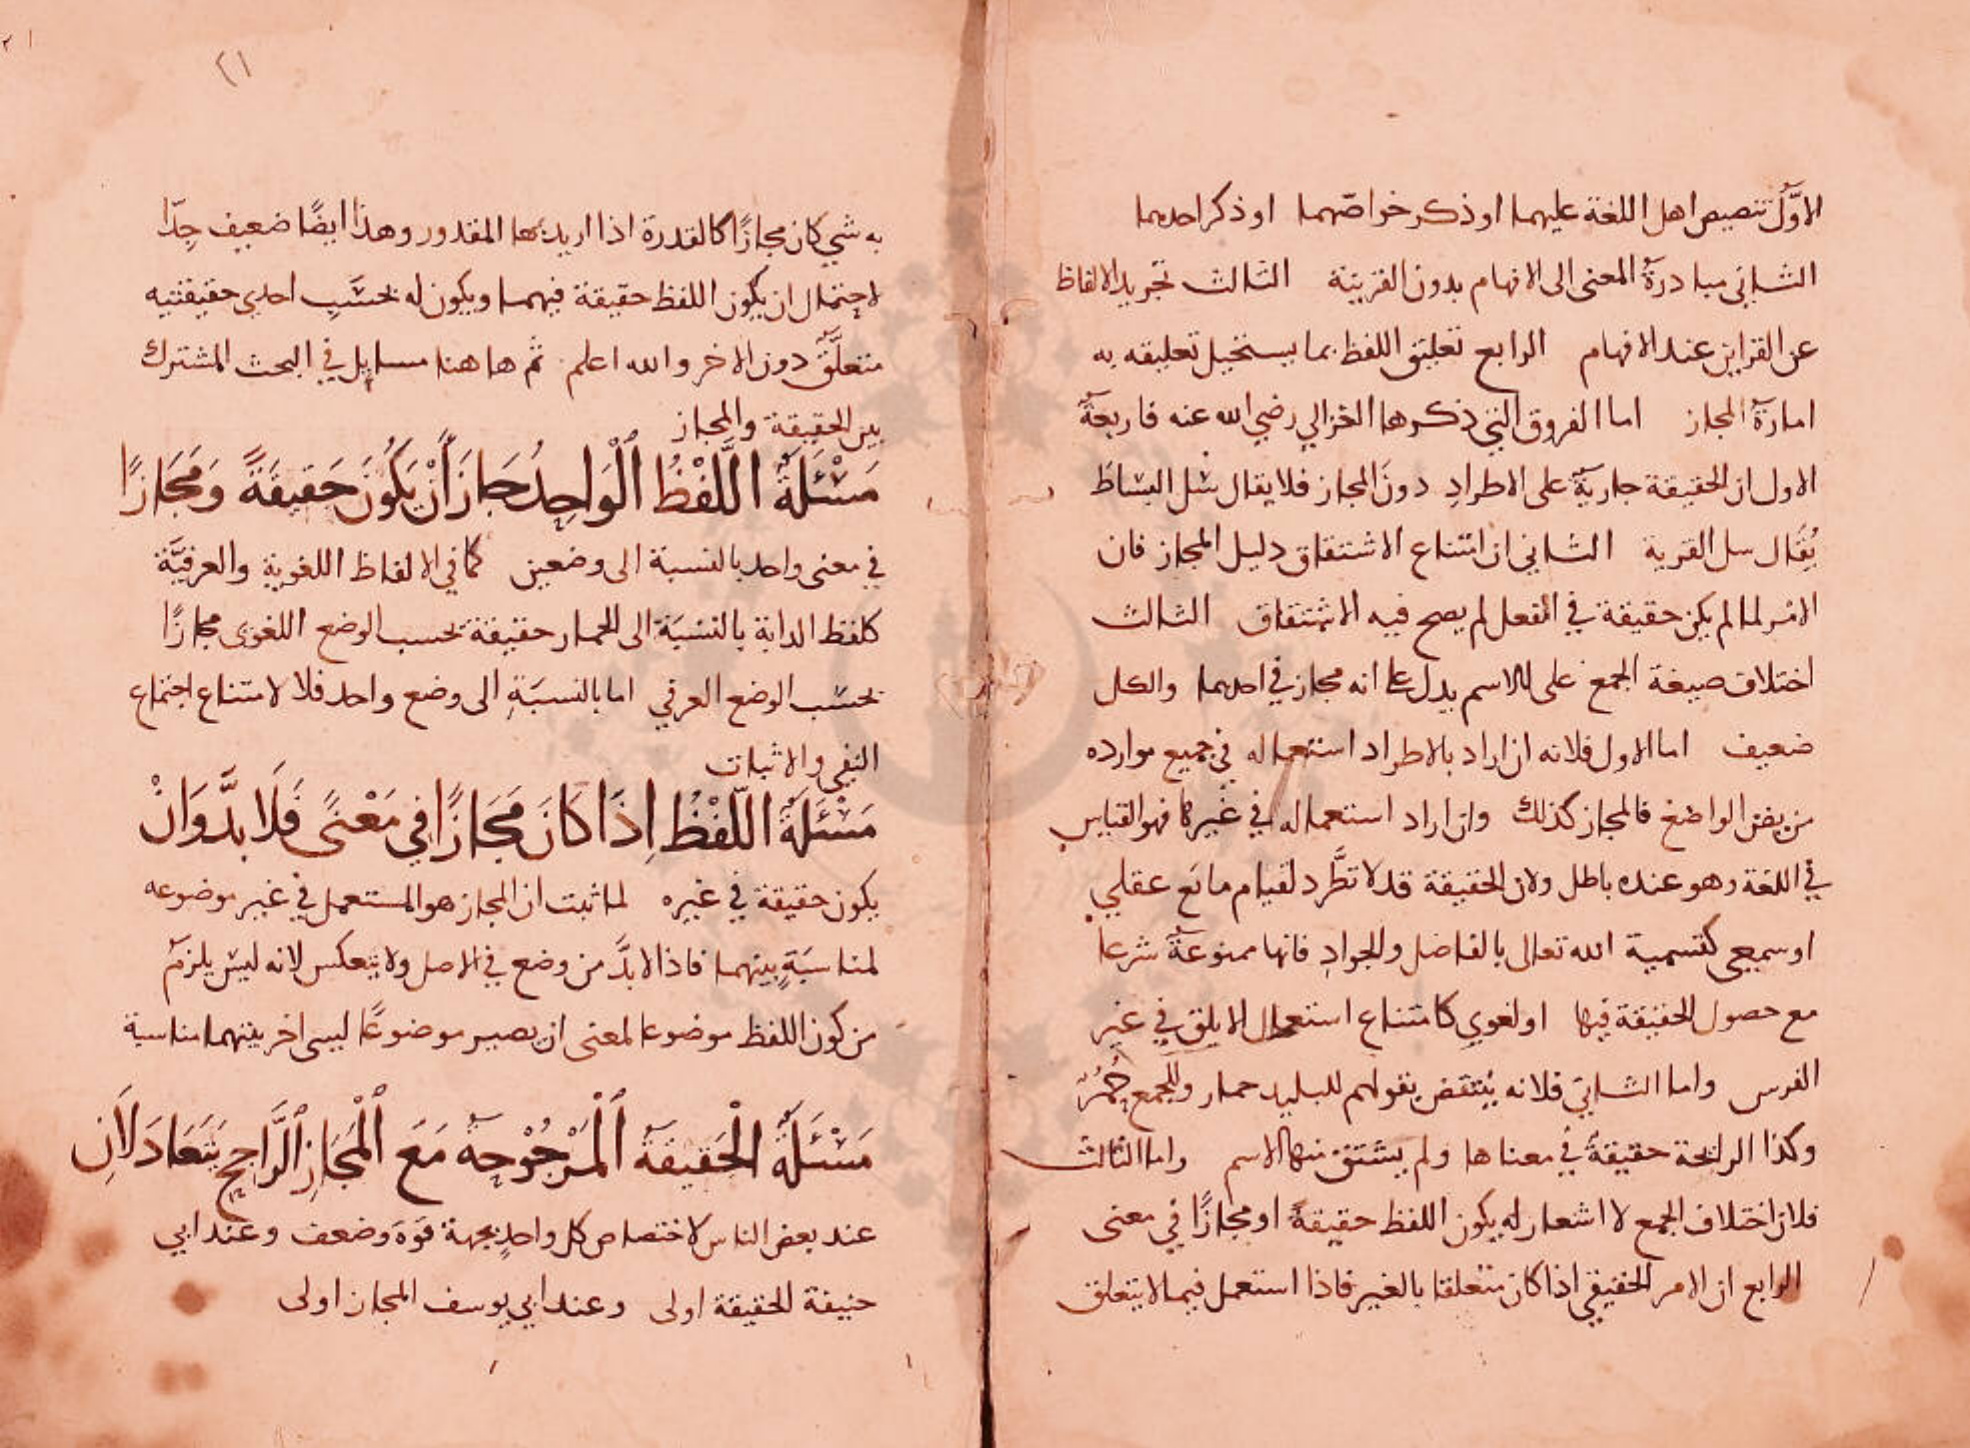 الاوّل تنصيص اهل اللغة عليهما او ذكر خواصّهما او ذكر احدهما
الثاني مبادرة المعنى الى الافهام بدون القرينة الثالث تجريد الالفاظ
عن القراين عند الافهام الرابع تعليق اللفظ بما يستحيل تعليقه به
امارة المجاز اما الفروق التي ذكرها الغزالي رضي الله عنه فاربعة
الاول ان الحقيقة جارية على الاطراد دون المجاز فلا يقال سَل البساط
يُقال سل القرية الثاني ان امتناع الاشتقاق دليل المجاز فان
الامر لما لم يكن حقيقة في الفعل لم يصح فيه الاشتقاق الثالث
اختلاف صيغة الجمع على الاسم يدل على انه مجاز في احدهما والكل
ضعيف اما الاول فلانه ان اراد بالاطراد استعماله في جميع موارده
من نص الواضع فالمجاز كذلك وان اراد استعماله في غيرها فهو القياس
في اللغة وهو عنده باطل ولان الحقيقة قد لا تطَّرد لقيام مانع عقلي
او سمعي كتسمية الله تعالى بالفاضل والجواد فانها ممنوعة شرعا
مع حصول الحقيقة فيها او لغوي كامتناع استعمال الابلق في غير
الفرس واما الثاني فلانه ينتقض بقولهم للبليد حمار وللجمع حُمُر
وكذا الرايحة حقيقةً في معناها ولم يشتق منها الاسم واما الثالث
فلان اختلاف الجمع لا اشعار له بكون اللفظ حقيقةً او مجازًا في معنى
الرابع ان الامر الحقيقي اذا كان متعلقا بالغير فاذا استعمل فيما لا يتعلق
٢١
به شي كان مجازًا كالقدرة اذا اريد بها المقدور وهذا ايضًا ضعيف جدّا
لاحتمال ان يكون اللفظ حقيقة فيهما ويكون له بحسَب احدي حقيقتيه
متعلَّق دون الاخر والله اعلم ثم هاهنا مسايل في البحث المشترك
بين الحقيقة والمجاز
مَسْئَلَةٌ اللَّفْظُ الْوَاحِدُ جَازَ أَنْ يَكُونَ حَقِيقَةً وَمَجَازًا
في معنى واحد بالنسبة الى وضعين كما في الالفاظ اللغوية والعرفيَّة
كلفظ الدابة بالنسبَة الى الحمار حقيقة بحسب الوضع اللغوى مجازًا
بحسَب الوضع العرفي اما بالنسبَةِ الى وضع واحد فلا لامتناع اجتماع
النفي والاثبات
مَسْئَلَةٌ اللَّفْظُ إِذَا كَانَ مَجَازًا فِي مَعْنًى فَلَا بدَّ وَانْ
يكون حقيقة في غيره لما ثبت ان المجاز هو المستعمل في غير موضوعه
لمناسبَةٍ بينهما فاذا لابدَّ من وضع في الاصل ولا ينعكس لانه ليس يلزم
من كون اللفظ موضوعا لمعنى ان يصير موضوعًا لشيء اخر بينهما مناسبة
مَسْئَلَةٌ الْحَقِيقَةُ الْمَرْجُوحَةُ مَعَ الْمَجَازِ الرَّاجِحِ يَتَعَادَلَانِ
عند بعض الناس لاختصاص كل واحدٍ بجهة قوة وضعف وعند ابي
حنيفة الحقيقة اولى وعند ابي يوسف المجاز اولى